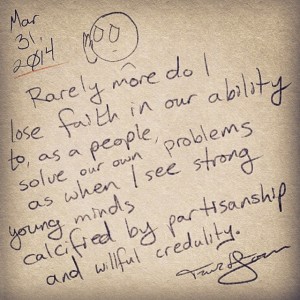 Mar
31,
2014
Rarely more do I
lose faith in our ability
to, as a people,
solve our own problems
as when I see strong
young minds
calcified by partisanship
and willful credulity.